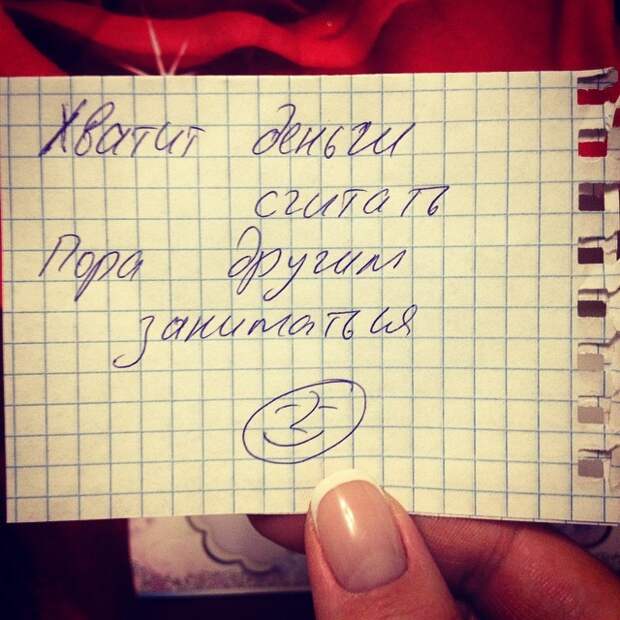 Хватит деньги
считать
Пора другим
заниматься